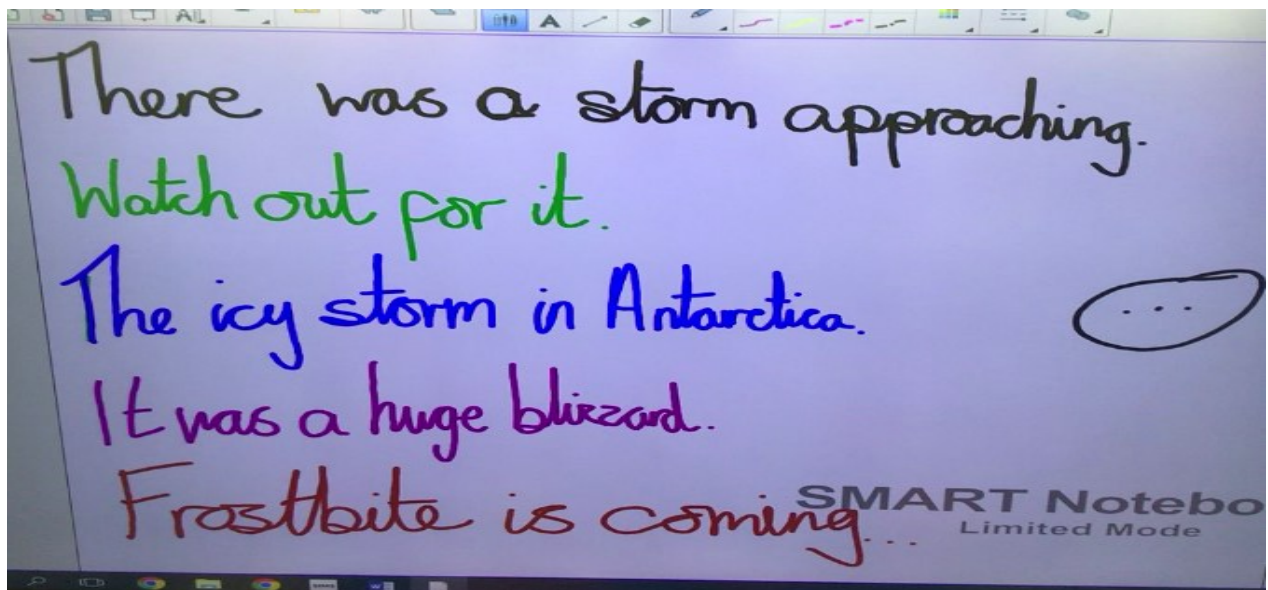 There was a storm approaching.
Watch out for it.
The icy storm in Antarctica.
...
It was a huge blizzard.
Frostbite is coming...
SMART Notebo
Limited Mode